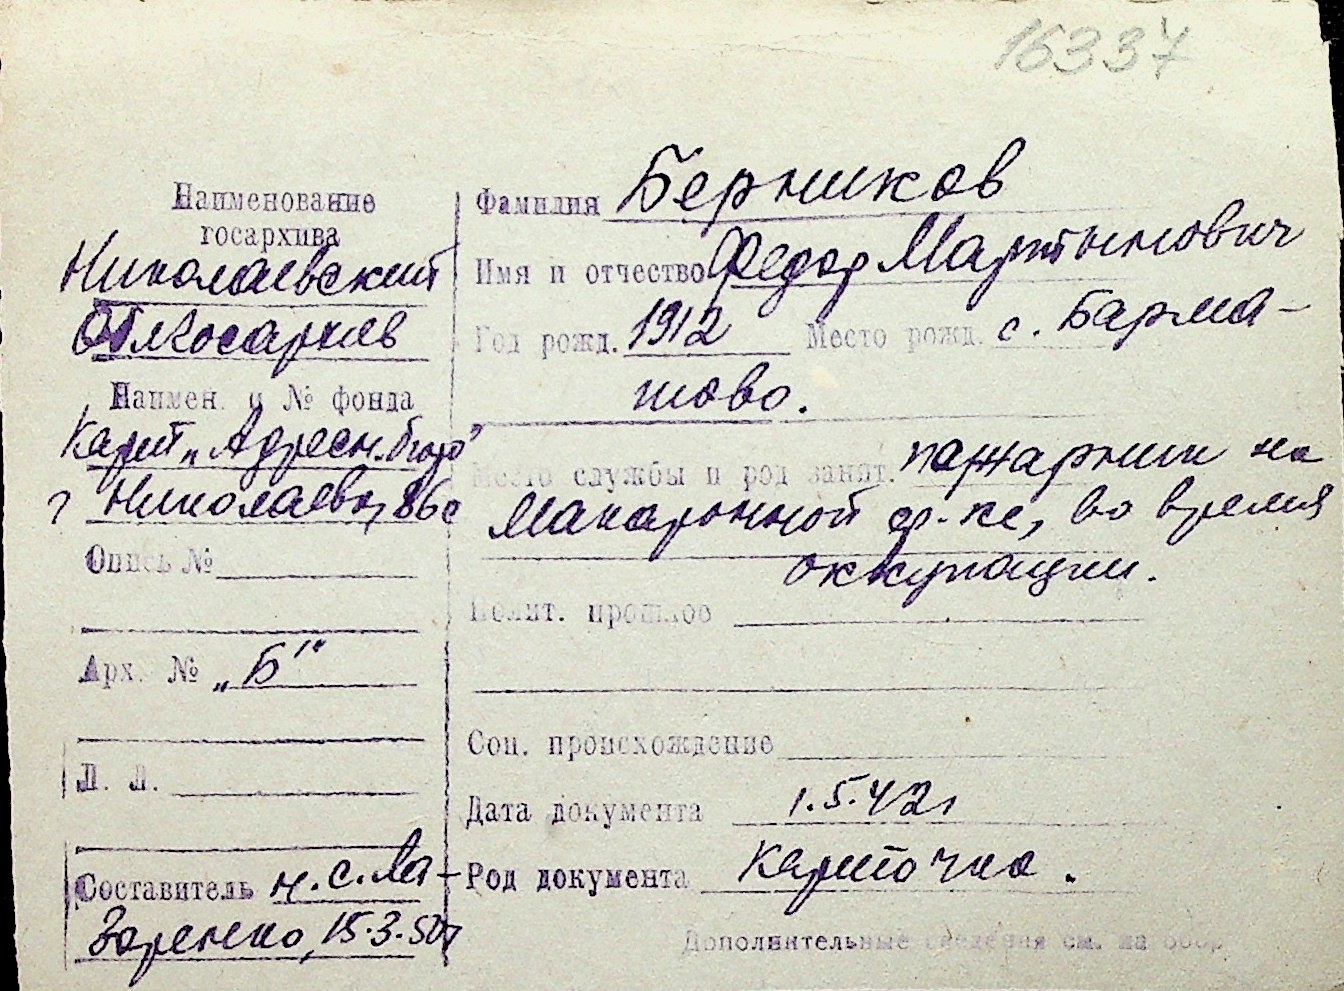 16337
Наименование
госархива
Николаевский
Облгосархив
Наимен. и № фонда
Карт. „Адресн. бюро”
г Николаева,
Опись №
Арх. № „Б“
Л. Л.
Составитель н.с. Ла-
заренко, 15.3.50г
Фамилия Берников
Имя и отчество Федор Мартынович
Год рожд. 1912 Место рожд. с. Барма-
шово.
Место службы и род занят. пожарник на
Макаронной ф-ке, во время
оккупации.
Полит. прошлое
Соц. происхождение
Дата документа 1.5.42г
Род документа карточка.
Дополнительные сведения см. на обор